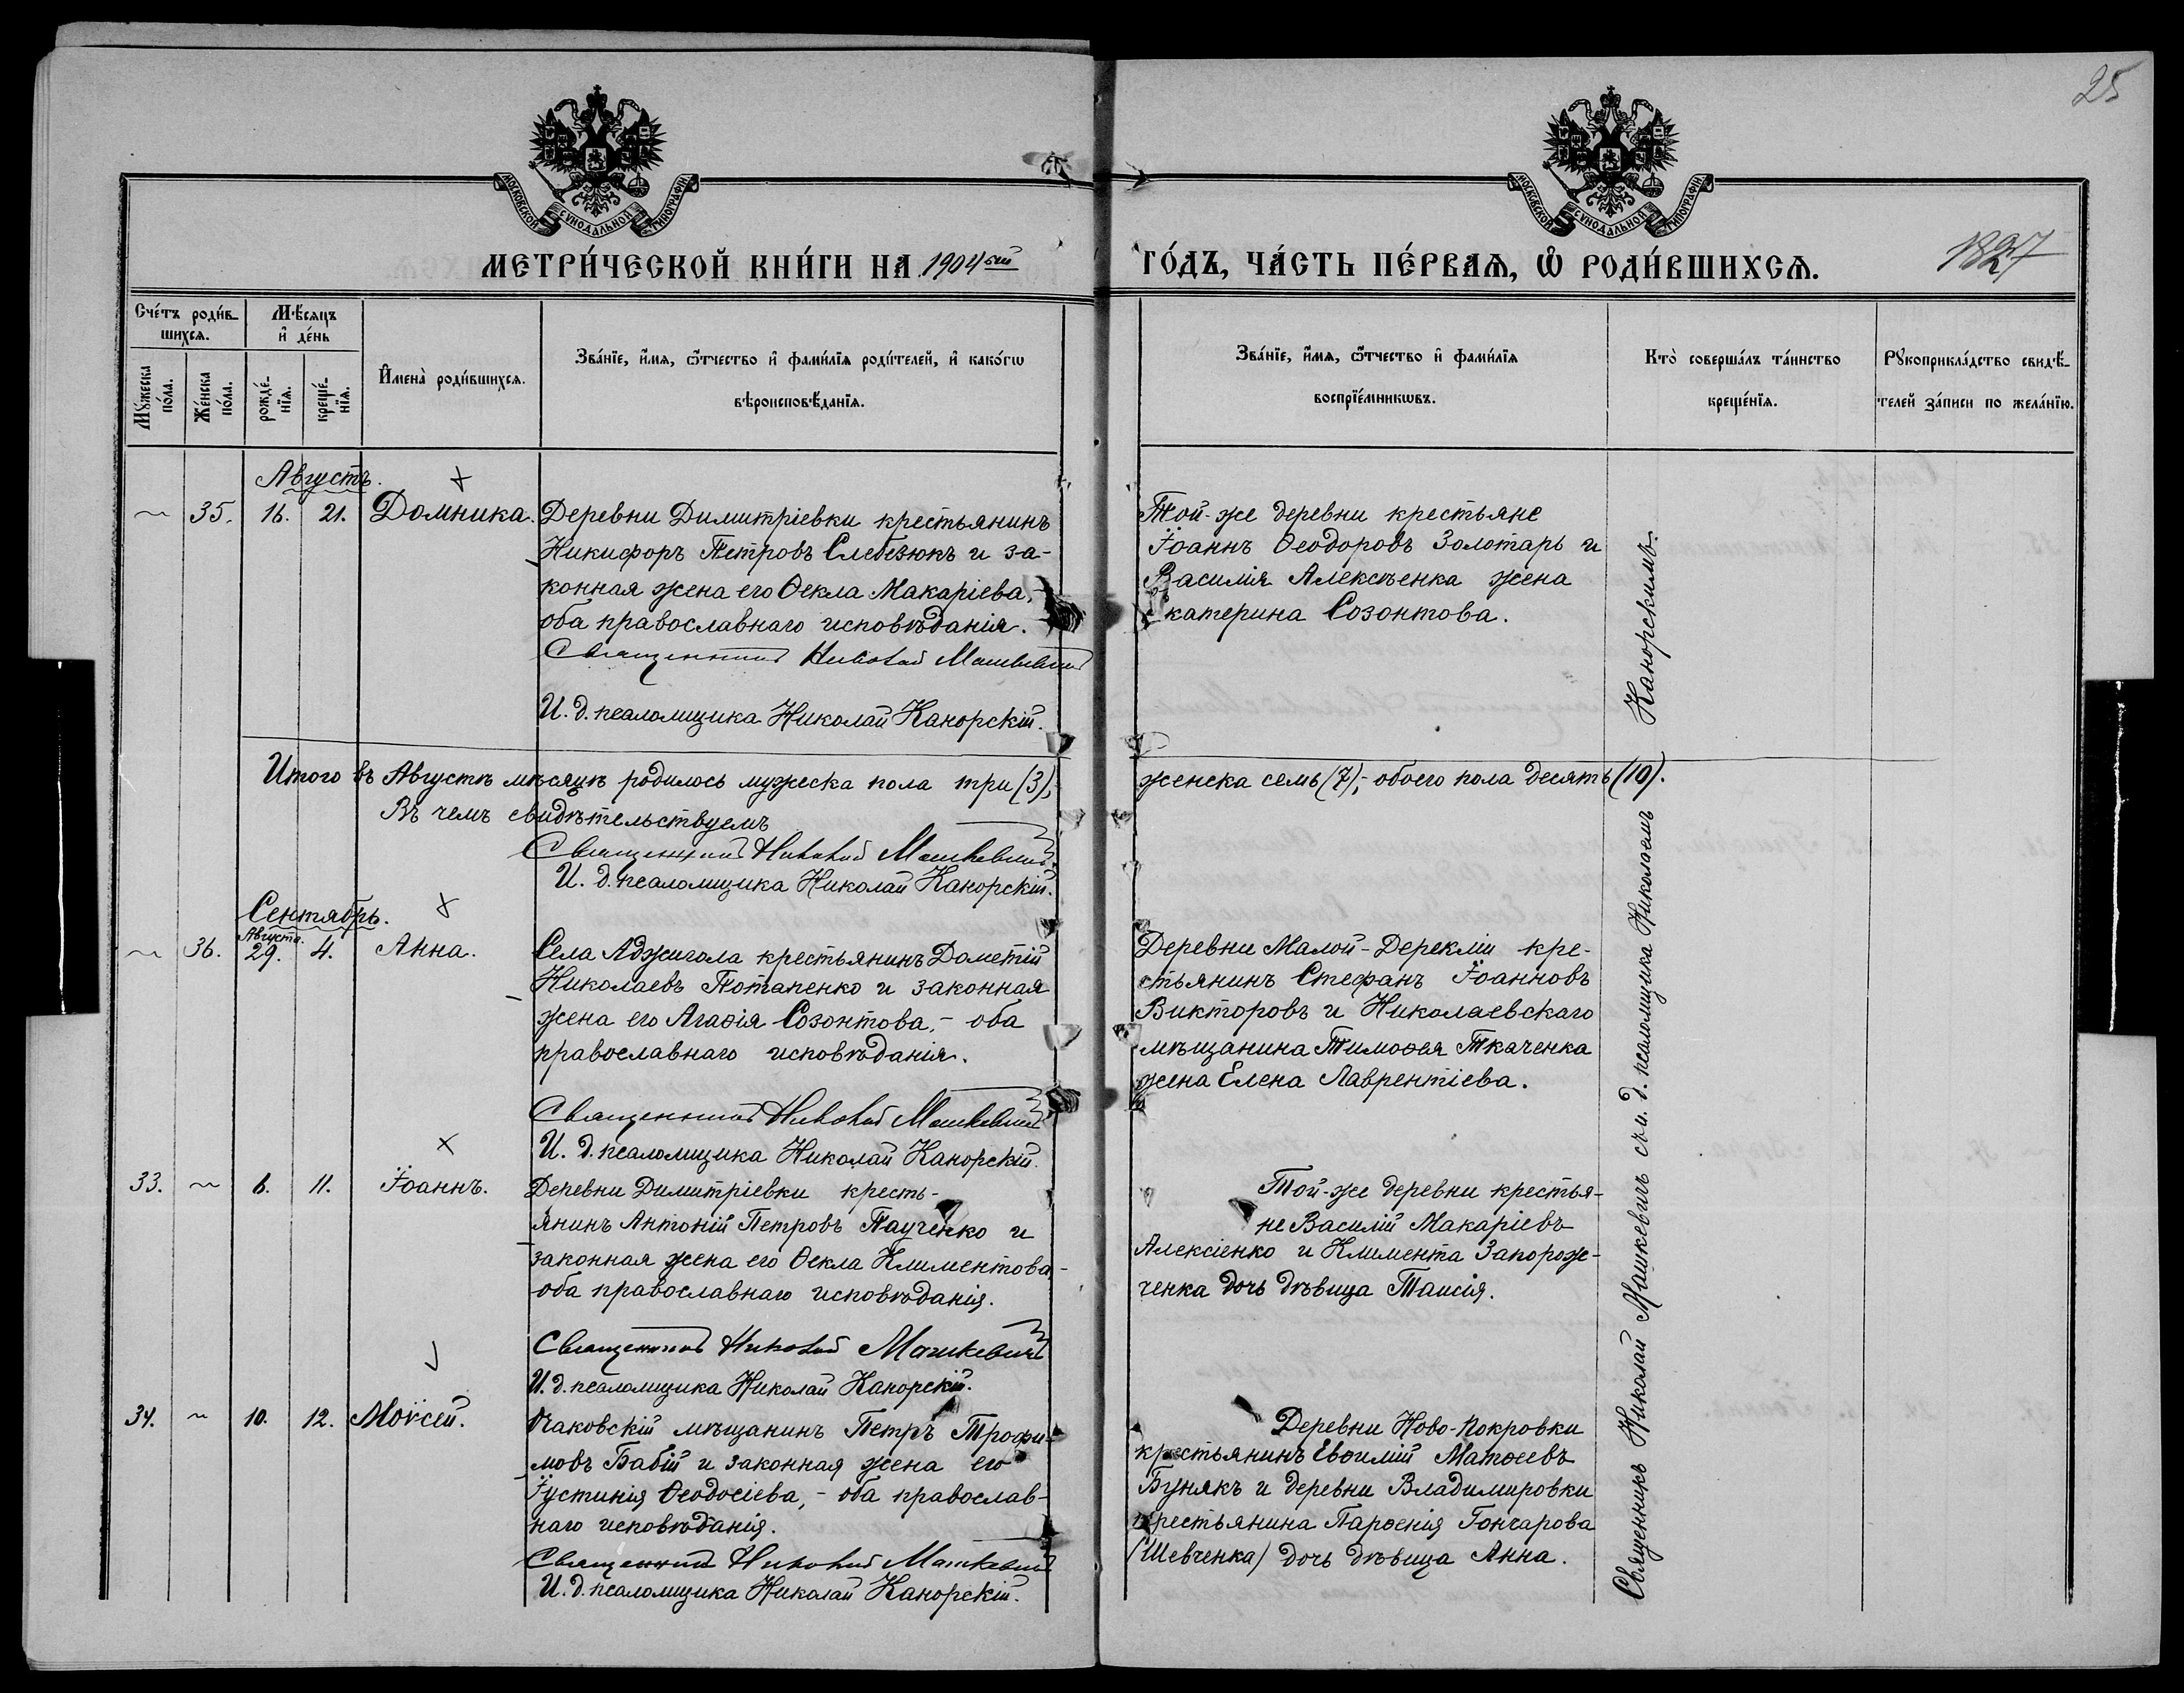 25
МОСКОВСКОЙ СѴНОДАЛЬНОЙ ТИПОГРАФІИ
МОСКОВСКОЙ СѴНОДАЛЬНОЙ ТИПОГРАФІИ
МЕТРИ́ЧЕСКОЙ КНИ́ГИ НА 1904ый
ГО́ДЪ, ЧА́СТЬ ПЕ́РВАѦ, Ѽ РОДИ́ВШИХСѦ.
1827
Сче́тъ роди́в-
шихсѧ.
Мѣ́сѧцъ
и҆ де́нь
Мꙋ́жеска
по́ла.
Же́нска
по́ла.
рожде́-
нїѧ.
креще́-
нїѧ.
И҆мена̀ роди́вшихсѧ.
Зва́нїе, и҆́мѧ, ѻ҆́тчество и҆ фами́лїѧ роди́телей, и҆ како́гѡ
вѣроисповѣ́данїѧ.
Зва́нїе, и҆́мѧ, ѻ҆́тчество и҆ фами́лїѧ
воспрїе́мникѡвъ.
Кто̀ соверша́лъ та́инство
креще́нїѧ.
Рꙋкоприкла́дство свидѣ́-
телей за́писи по жела́нїю.
Августъ.
~ 35. 16. 21. Домника. Деревни Димитріевки крестьянинъ
Никифоръ Петровъ Слебезюкъ и за-
конная жена его Ѳекла Макаріева,-
оба православнаго исповѣданія.
Священникъ Николай Машкевичъ
И. д. псаломщика Николай Канорскій.
Той-же деревни крестьяне
Іоаннъ Ѳеодоровъ Золотарь и
Василія Алексѣенка жена
Екатерина Созонтова.
Итого въ Августѣ мѣсяцѣ родилось мужеска пола три (3),-
женска семь (7),- обоего пола десять (10).
Въ чемъ свидѣтельствуемъ
Священникъ Николай Машкевичъ
И. д. псаломщика Николай Канорскій.
Сентябрь.
Августа.
~ 36. 29. 4. Анна. Села Аджигола крестьянинъ Дометій
Николаевъ Потапенко и законная
жена его Агаѳія Созонтова,- оба
православнаго исповѣданія.
Священникъ Николай Машкевичъ
И. д. псаломщика Николай Канорскій.
Деревни Малой-Дерекліи кре-
стьянинъ Стефанъ Іоанновъ
Викторовъ и Николаевскаго
мѣщанина Тимоѳея Ткаченка
жена Елена Лаврентіева.
33. ~ 6. 11. Іоаннъ. Деревни Димитріевки кресть-
янинъ Антоній Петровъ Паученко и
законная жена его Ѳекла Климентова,-
оба православнаго исповѣданія.
Священникъ Николай Машкевичъ
И. д. псаломщика Николай Канорскій.
Той-же деревни крестья-
не Василій Макаріевъ
Алексіенко и Климента Запорож-
ченка дочь дѣвица Таисія.
34. ~ 10. 12. Моѵсей. Очаковскій мѣщанинъ Петръ Трофи-
мовъ Бабій и законная жена его
Іустинія Ѳеодосіева,- оба православ-
наго исповѣданія.
Священникъ Николай Машкевичъ
И. д. псаломщика Николай Канорскій.
Деревни Ново-Покровки
крестьянинъ Евѳимій Матѳеевъ
Бунякъ и деревни Владимировки
крестьянина Парѳенія Гончарова
(Шевченка) дочь дѣвица Анна.
Священникъ Николай Машкевичъ съ и. д. псаломщика Николаемъ Канорскимъ.